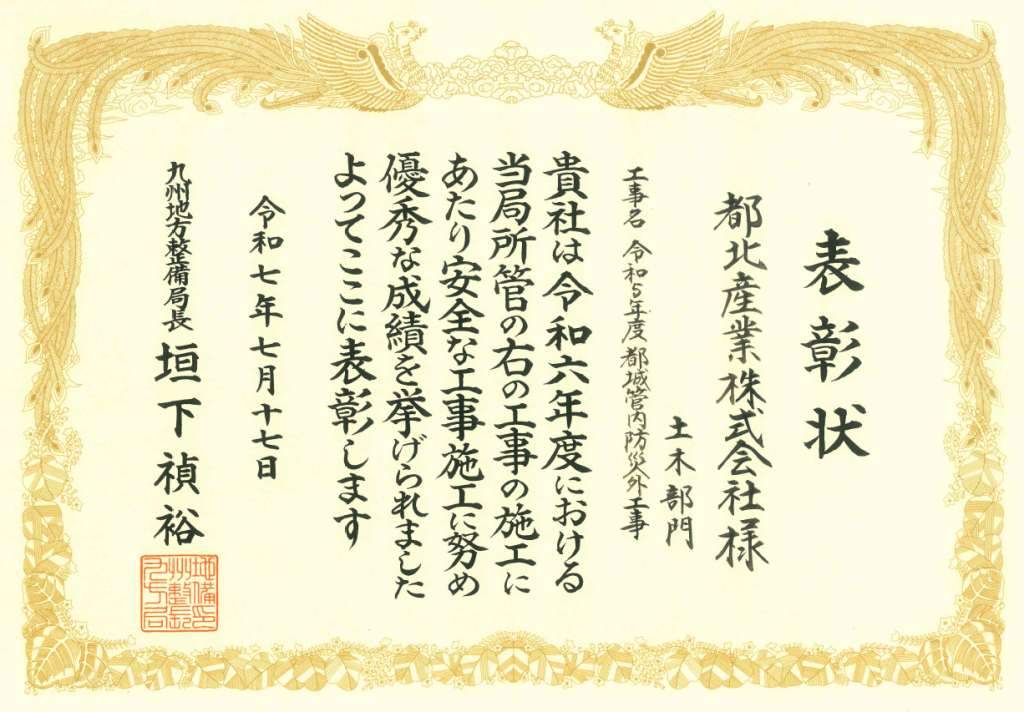 表彰状
都北産業株式会社様
土木部門
工事名 令和5年度 都城管内防災外工事
貴社は令和六年度における
当局所管の右の工事の施工に
あたり安全な工事施工に努め
優秀な成績を挙げられました
よってここに表彰します
令和七年七月十七日
九州地方整備局長 垣下禎裕